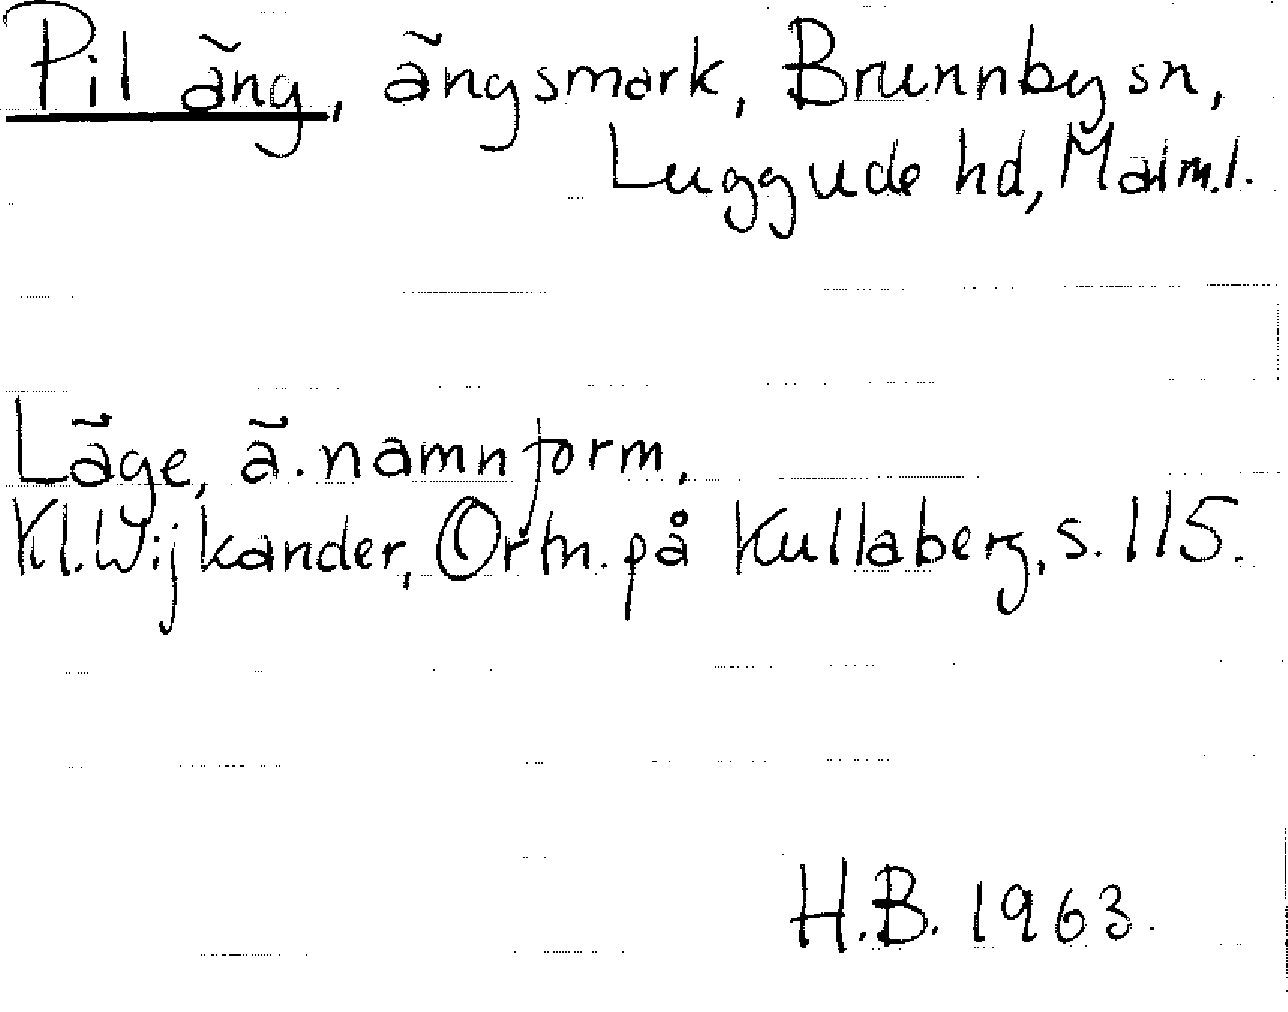 Pil äng, ängsmark, Brunnby sn,
Luggude hd, Malm.l.
Läge, ä. namnform,
Kl. Wijkander, Ortn. på Kullaberg, s. 115.
H.B. 1963.